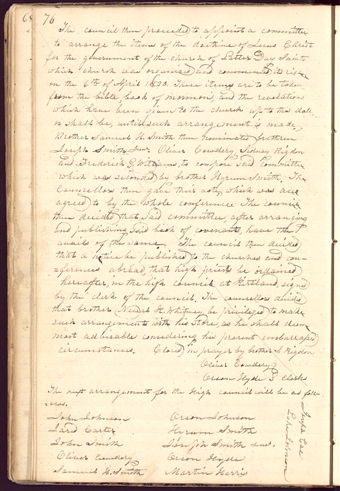 76
The council then proceeded to appoint a committee
to arrange the items of the doctrine of Jesus Christ
for the government of the church of Latter Day Saints
which church was organized and commenced its rise
on the 6th of April 1830. These items are to be taken
from the bible, book of mormon, and the revelations
which have been given to the church up to this date
or shall be, until such arrangement is made.
Brother Samuel H. Smith then nominated brethren
Joseph Smith Junr. Oliver Cowdery, Sidney Rigdon
and Frederick G. Williams, to compose said committee
which was seconded by brother Hyrum Smith. The
Counsellors then gave their vote, which was also
agreed to by the whole conference. The council
then decided that said committee, after arranging
and publishing said book of covenants, have the
avails of the same. The council then decided
that a notice be published to the churches and con-
ferences abroad, that high priests be ordained
hereafter, in the high council at Kirtland, signed
by the clerk of the council. The counsellors decided
that brother Newel K. Whitney be privileged to make
such arrangements with his Store, as he shall deem
most advisable considering his present embarrassed
circumstances. Closed in prayer by brother S. Rigdon
Oliver Cowdery
Orson Hyde } Clerks
The next arrangement for the high council will be as fol-
lows.
John Johnson
Jared Carter
John Smith
Oliver Cowdery
Samuel H. Smith
Orson Johnson
Hyrum Smith
Joseph Smith sen.
Orson Hyde
Martin Harris
Joseph Coe
Luke Johnson